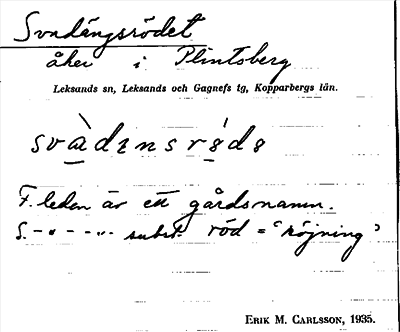 Svadängsrödet
åker i Plintsberg
Leksands sn, Leksands och Gagnefs tg, Kopparbergs län.
F. leden är ett gårdsnamn.
S. -"- -"- subst. röd = "röjning"
ERIK M. CARLSSON, 1935.